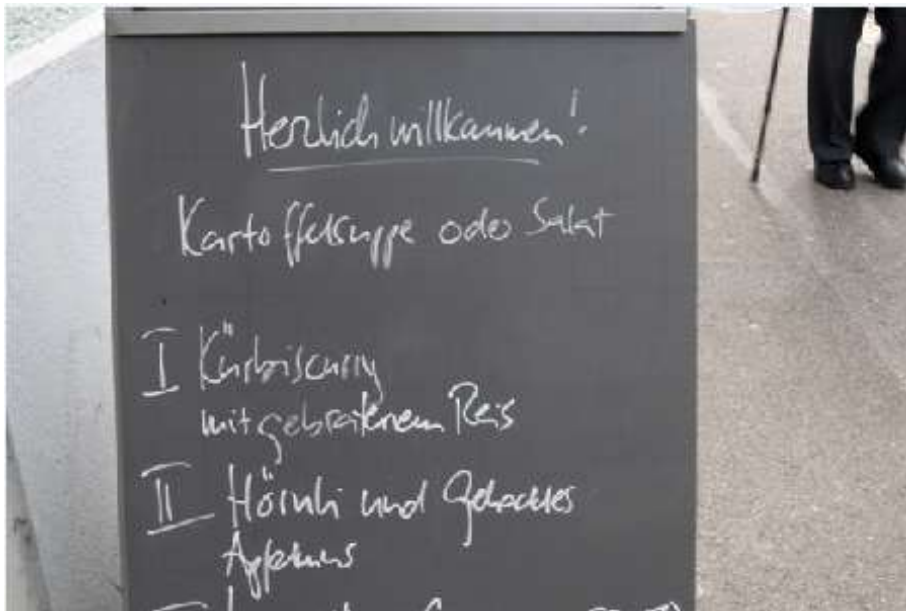 Herzlich willkommen!
Kartoffelsuppe oder Salat
I Kürbiscurry
mit gebratenem Reis
II Hörnli und Gehacktes
Apfelmus